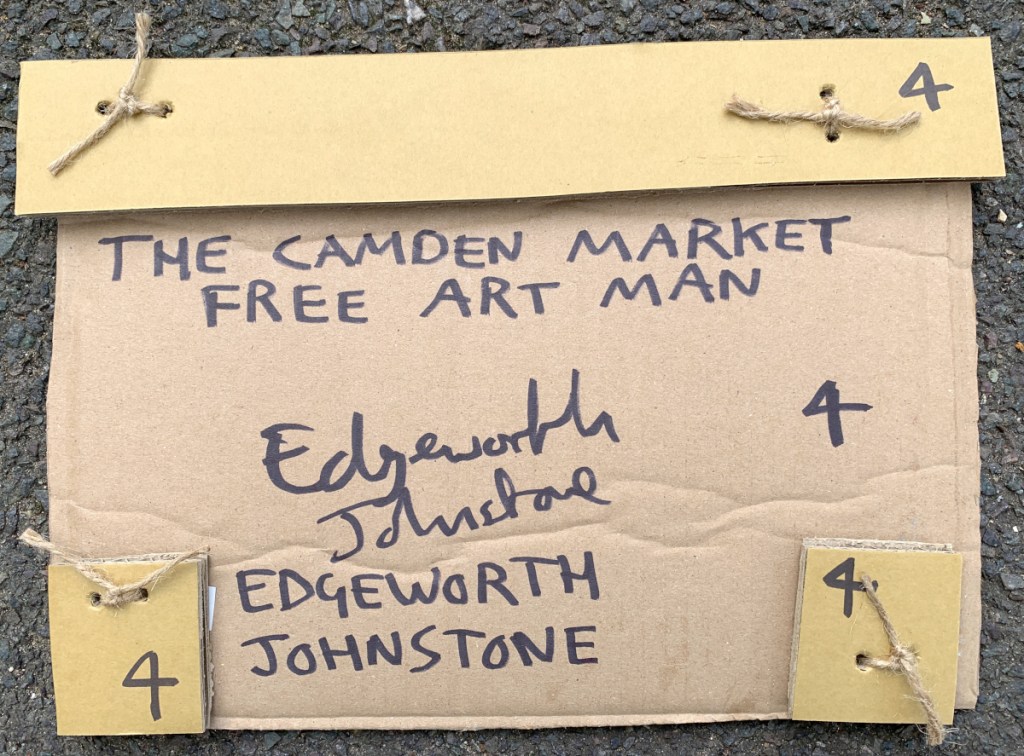 4
THE CAMDEN MARKET
FREE ART MAN
4
Edgeworth
Johnstone
EDGEWORTH
JOHNSTONE
4
4